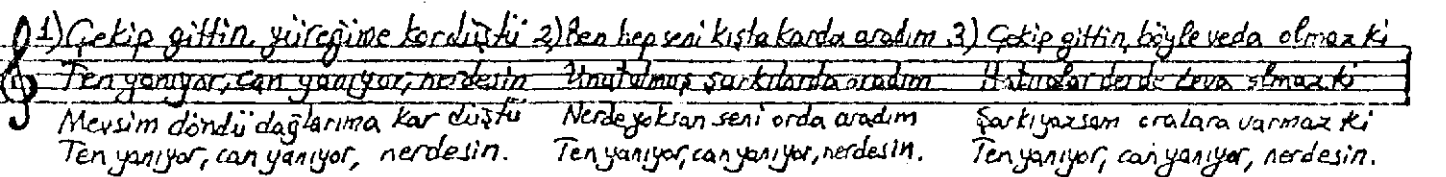 1) Çekip gittin, yüreğime kor düştü
Ten yanıyor, can yanıyor, nerdesin
Mevsim döndü dağlarıma kar düştü
Ten yanıyor, can yanıyor, nerdesin.
2) Ben hep seni kışta karda aradım
Unutulmuş şarkılarda aradım
Nerde yoksan seni orda aradım
Ten yanıyor, can yanıyor, nerdesin.
3) Çekip gittin, böyle veda olmaz ki
Hatıralar derde deva olmaz ki
Şarkı yazsam oralara varmaz ki
Ten yanıyor, can yanıyor, nerdesin.